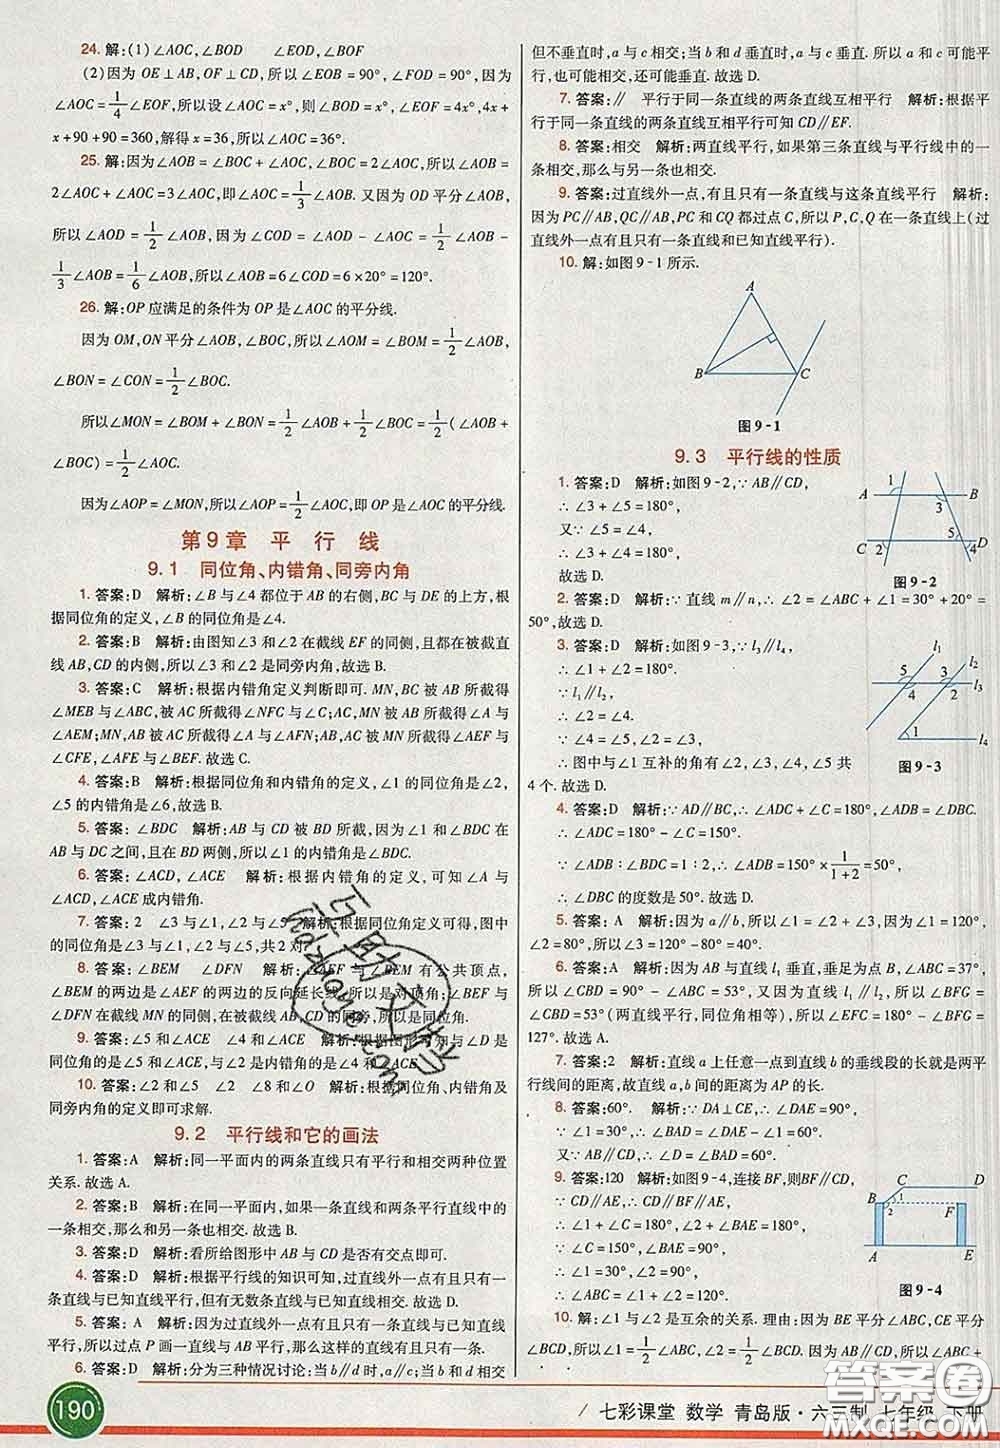 24. 解:(1)∠AOC,∠BOD ∠EOD,∠BOF
(2)因为 OE⊥AB,OF⊥CD,所以∠EOB=90°,∠FOD=90°,又因为
∠AOC=1/4∠EOF,所以设∠AOC=x°,则∠BOD=x°,∠EOF=4x°,4x
+x+90+90=360,解得 x=36,所以∠AOC=36°.
25. 解:因为∠AOB=∠BOC+∠AOC,∠BOC=2∠AOC,所以∠AOB=
2∠AOC+∠AOC=3∠AOC,即∠AOC=1/3∠AOB. 又因为 OD 平分∠AOB,
所以∠AOD=1/2∠AOB,所以∠COD=∠AOD-∠AOC=1/2∠AOB-
1/3∠AOB=1/6∠AOB,所以∠AOB=6∠COD=6×20°=120°.
26. 解:OP 应满足的条件为 OP 是∠AOC 的平分线.
因为 OM,ON 平分∠AOB,∠BOC,所以∠AOM=∠BOM=1/2∠AOB,
∠BON=∠CON=1/2∠BOC.
所以∠MON=∠BOM+∠BON=1/2∠AOB+1/2∠BOC=1/2(∠AOB+
∠BOC)=1/2∠AOC.
因为∠AOP=∠MON,所以∠AOP=1/2∠AOC,即 OP 是∠AOC 的平分线.
第9章 平行线
9.1 同位角、内错角、同旁内角
1. 答案:D 解析:∠B 与∠4 都位于 AB 的右侧,BC 与 DE 的上方,根
据同位角的定义,∠B 的同位角是∠4.
2. 答案:B 解析:由图知∠3 和∠2 在截线 EF 的同侧,且都在被截直
线 AB,CD 的内侧,所以∠3 和∠2 是同旁内角,故选 B.
3. 答案:C 解析:根据内错角定义判断即可. MN,BC 被 AB 所截得
∠MEB 与∠ABC,被 AC 所截得∠NFC 与∠C;AC,MN 被 AB 所截得∠A 与
∠AEM;MN,AB 被 AC 所截得∠A 与∠AFN;AB,AC 被 MN 所截得∠AEF 与
∠CFE,∠AFE 与∠BEF. 故选 C.
4. 答案:B 解析:根据同位角和内错角的定义,∠1 的同位角是∠2,
∠5 的内错角是∠6,故选 B.
5. 答案:∠BDC 解析:AB 与 CD 被 BD 所截,因为∠1 和∠BDC 在
AB 与 DC 之间,且在 BD 两侧,所以∠1 的内错角是∠BDC.
6. 答案:∠ACD,∠ACE 解析:根据内错角的定义,可知∠A 与
∠ACD,∠ACE 成内错角.
7. 答案:2 ∠3 与∠1,∠2 与∠5 解析:根据同位角定义可得,图中
的同位角为∠3 与∠1,∠2 与∠5,共 2 对.
8. 答案:∠BEM ∠DFN 解析:∠AEF 与∠BEM 有公共顶点,
∠BEM 的两边是∠AEF 的两边的反向延长线,所以是对顶角;∠BEM 与
∠DFN 在截线 MN 的同侧,在被截线 AB,CD 的同旁,所以是同位角.
9. 答案:∠5 和∠ACE ∠4 和∠ACE 解析:根据图形可知与∠D 是
同位角的是∠5 和∠ACE,与∠2 是内错角的是∠4 和∠ACE.
10. 答案:∠2 和∠5 ∠2 ∠8 和∠2 解析:根据同位角、内错角及
同旁内角的定义即可求解.
9.2 平行线和它的画法
1. 答案:A 解析:同一平面内的两条直线只有平行和相交两种位置
关系. 故选 A.
2. 答案:B 解析:在同一平面内,如果一条直线和两条平行直线中的
一条相交,那么和另一条也相交. 故选 B.
3. 答案:D 解析:看所给图形中 AB 与 CD 是否有交点即可.
4. 答案:D 解析:根据平行线的知识可知,过直线外一点有且只有一
条直线与已知直线平行,但有无数条直线与已知直线相交. 故选 D.
5. 答案:A 解析:因为过直线外一点有且只有一条直线与已知直线
平行,所以过点 P 画一直线与 AB 平行,那么这样的直线有且只有一条.
6. 答案:D 解析:分为三种情况讨论:当 b∥d 时,a∥c;当 b 和 d 相交
但不垂直时,a 与 c 相交;当 b 和 d 垂直时,a 与 c 垂直. 所以 a 和 c 可能平
行,也可能相交,还可能垂直. 故选 D.
7. 答案:∥ 平行于同一条直线的两条直线互相平行 解析:根据平
行于同一条直线的两条直线互相平行可知 CD∥EF.
8. 答案:相交 解析:两直线平行,如果第三条直线与平行线中的一
条相交,那么与另一条也相交.
9. 答案:过直线外一点,有且只有一条直线与这条直线平行 解析:
因为 PC∥AB,QC∥AB,PC 和 CQ 都过点 C,所以 P,C,Q 在一条直线上(过
直线外一点有且只有一条直线和已知直线平行).
10. 解:如图 9-1 所示.
A
B C
图 9-1
9.3 平行线的性质
1. 答案:D 解析:如图 9-2,∵AB∥CD,
∴∠3+∠5=180°,
又∵∠5=∠4,
∴∠3+∠4=180°,
故选 D.
1 A B 3 5 C 2 4 D
图 9-2
2. 答案:D 解析:∵直线 m∥n,∴∠2=∠ABC+∠1=30°+20°=
50°,故选 D.
3. 答案:D 解析:如图 9-3,∵l₃∥l₄,
∴∠1+∠2=180°.
∵l₁∥l₂,
∴∠4=∠2.
∵∠4=∠5,∠2=∠3,
∴图中与∠1 互补的角有∠2,∠3,∠4,∠5 共
4 个. 故选 D.
l₁ l₂ 5 3 l₃ 4 2 1 l₄
图 9-3
4. 答案:D 解析:∵AD∥BC,∴∠ADC+∠C=180°,∠ADB=∠DBC.
∴∠ADC=180°-∠C=150°.
∵∠ADB∶∠BDC=1∶2,∴∠ADB=150°×1/(1+2)=50°,
∴∠DBC 的度数是 50°. 故选 D.
5. 答案:A 解析:因为 a∥b,所以∠1=∠2+∠3,因为∠1=120°,
∠2=80°,所以∠3=120°-80°=40°. 故选 A.
6. 答案:D 解析:因为 AB 与直线 l₁ 垂直,垂足为点 B,∠ABC=37°,
所以∠CBD=90°-∠ABC=53°,又因为直线 l₁∥l₂,所以∠BFG=
∠CBD=53°(两直线平行,同位角相等),所以∠EFC=180°-∠BFG=
127°.
7. 答案:2 解析:直线 a 上任意一点到直线 b 的垂线段的长就是两平
行线间的距离,故直线 a,b 间的距离为 AP 的长.
8. 答案:60°. 解析:∵DA⊥CE,∴∠DAE=90°,∵∠1=30°,
∴∠BAD=60°,又∵AB∥CD,∴∠D=∠BAD=60°.
9. 答案:120 解析:如图 9-4,连接 BF,则 BF∥CD,
∵CD∥AE,∴CD∥BF∥AE,
∴∠1+∠C=180°,∠2+∠BAE=180°,
∵∠C=150°,∠BAE=90°,
∴∠1=30°,∠2=90°,
∴∠ABC=∠1+∠2=120°.
C D B 1 2 F A E
图 9-4
10. 解:∠1 与∠2 是互余的关系. 理由:因为 BE 平分∠ABD,DE 平分
∠BDC,所以∠1=1/2∠ABD,∠2=1/2∠BDC,所以∠1+∠2=1/2∠ABD
190
七彩课堂 数学 青岛版·六三制 七年级 下册
答案圈
MXQE.COM